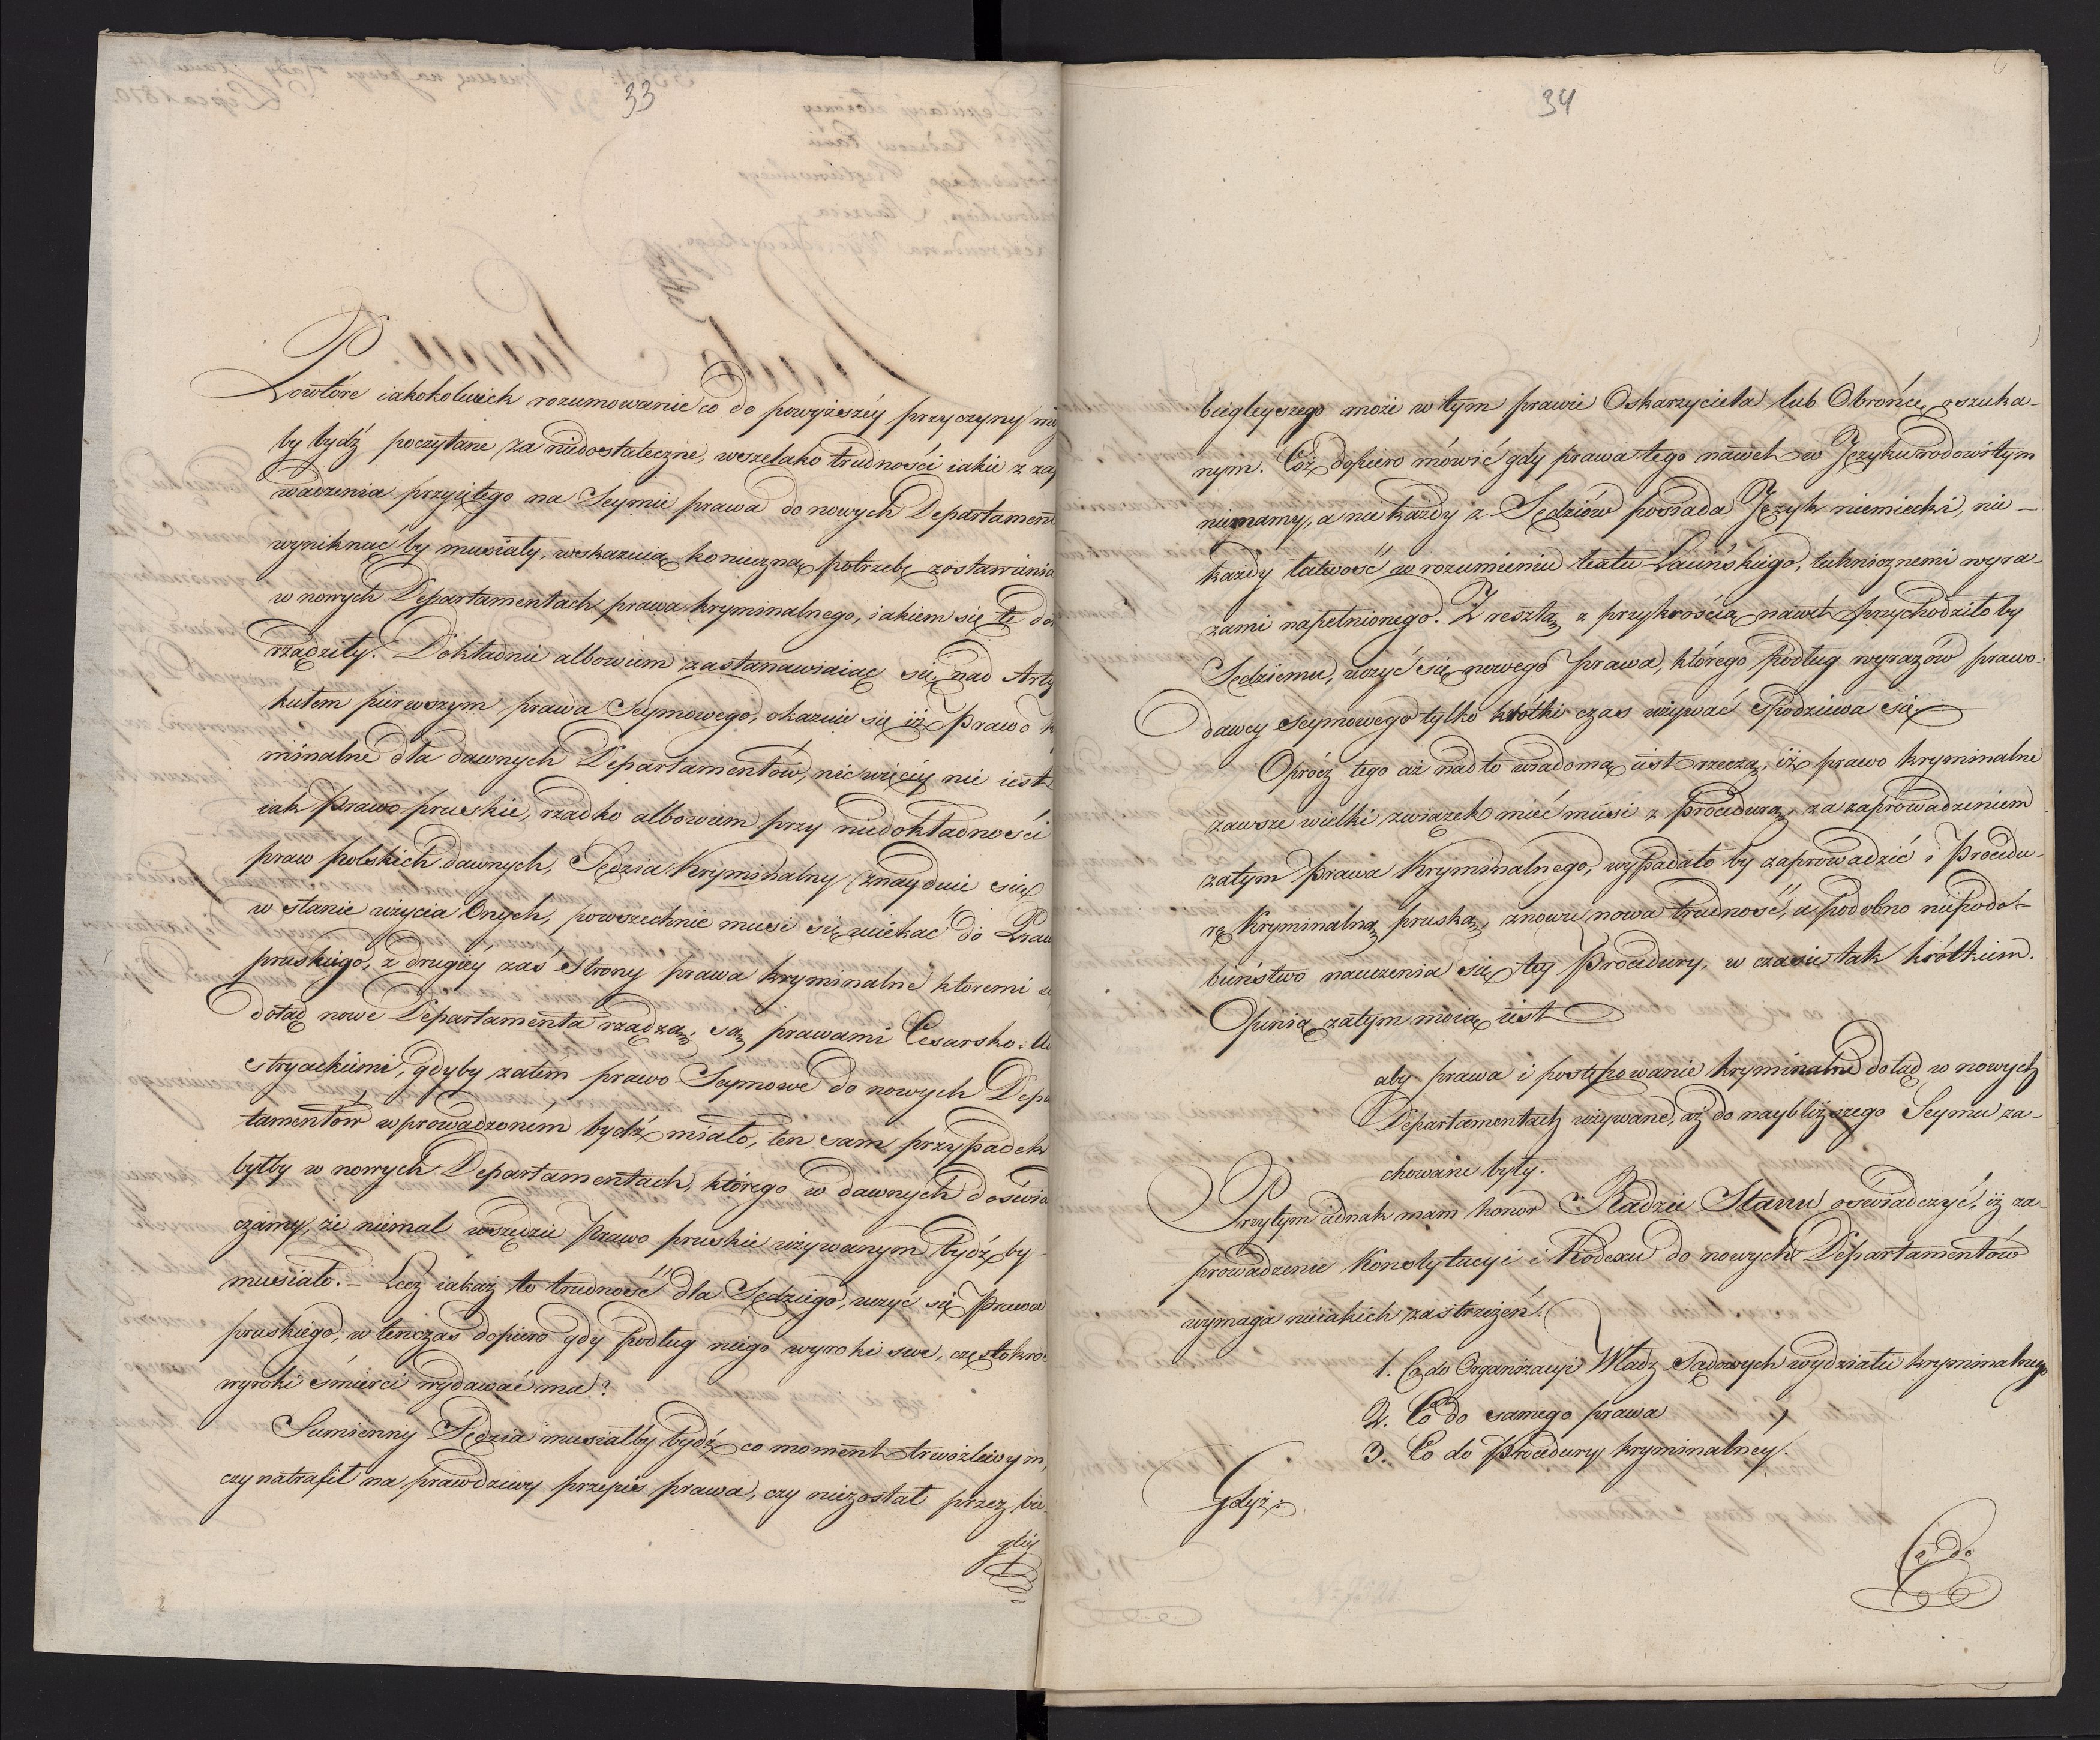 33
Powtóre iakokolwiek rozumowanie co do powyższéy przyczyny
by bydź poczytane za niedostateczne, wszelako trudności iakie z
wadzenia przyiętego na Seymie prawa do nowych Departament
wyniknąć by musiały, wskazuią konieczną potrzebę zostawienia
w nowych Departamentach prawa kryminalnego, iakiem się te do
rządziły. Dokładnie albowiem zastanawiaiąc się nad Arty
kułem pierwszym prawa Seymowego, okazuie się iż Prawo k
minalne dla dawnych Departamentów, nic więcéy nie iest
iak Prawo pruskie, rzadko albowiem przy niedokładności
praw polskich dawnych, Sędzia Kryminalny znayduie się
w stanie użycia Onych, powszechnie musi się uciekać do Praw
pruskiego, z drugiéy zaś strony prawa kryminalne ktoremi
dotąd nowe Departamenta rządzą, są prawami Cesarsko-Au
stryackiemi, gdyby zatém prawo Seymowe do nowych Depa
tamentów wprowadzoném bydź miało, ten sam przypadek
byłby w nowych Departamentach, którego w dawnych doświa
czamy, że niemal wszędzie Prawo pruskie używanym bydź by
musiało. – Lecz iakaż to trudność dla Sędziego, uczyć się Prawa
pruskiego, w tenczas dopiero gdy podług niego wyroki swe, częstokro
wyroki śmierci wydawać ma?
Sumienny Sędzia musiałby bydź co moment trwożliwym,
czy natrafił na prawdziwy przepis prawa, czy niezostał przez bie-
gléy
34
biegleyszego może w tym prawie Oskarzyciela lub Obrońcę oszuka-
nym. Cóż dopiero mówić gdy prawa tego nawet w Języku rodowitym
niemamy, a nie każdy z Sędziów posiada Język niemiecki, nie-
każdy łatwość w rozumieniu textu Łacińskiego, technicznemi wyra-
zami napełnionego. Z resztą z przykrością nawet przychodziłoby
Sędziemu, uczyć się nowego Prawa, którego podług wyrazów prawo-
dawcy Seymowego tylko krótki czas używać spodziewa się.
Oprócz tego aż nadto wiadomą iest rzeczą, iż prawo kryminalne
zawsze wielki związek mieć musi z procedurą, za zaprowadzeniem
zatym Prawa Kryminalnego, wypadało by zaprowadzić i Procedu-
rę Kryminalną pruską, znowu nowa trudność, a podobno niepodo-
bieństwo nauczenia się tey Procedury, w czasie tak krótkim.
Opinią zatym moią iest
aby prawa i postępowanie kryminalne dotąd w nowych
Departamentach używane, aż do naybliższego Seymu za-
chowane były.
Przytym iednak mam honor Radzie Stanu oświadczyć, iż za-
prowadzenie Konstytucyi i Kodexu do nowych Departamentów
wymaga nieiakich zastrzeżeń:
1. Co do Organizacyi Władz Sądowych wydziału kryminalnego
2. Co do samego prawa
3. Co do Procedury kryminalnéy.
Gdyż:
Co do